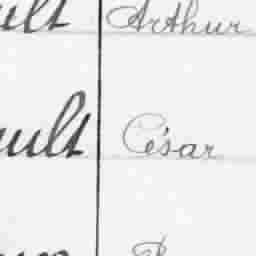 ult Arthur
ult César